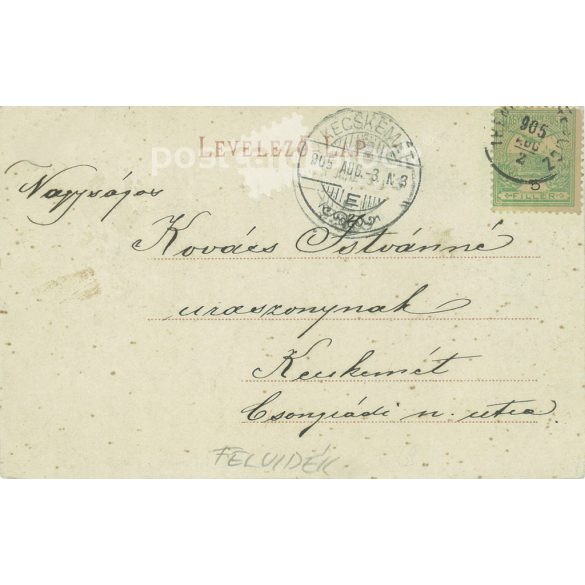 LEVELEZŐ-LAP.
KECSKEMÉT
905 AUG. -3. N 8
E
905
AUG
2
5
FILLER
Nagyságos
Kovács Istvánné
uraszonynak
Kecskemét
Csongrádi n. utca.
FELVIDÉK